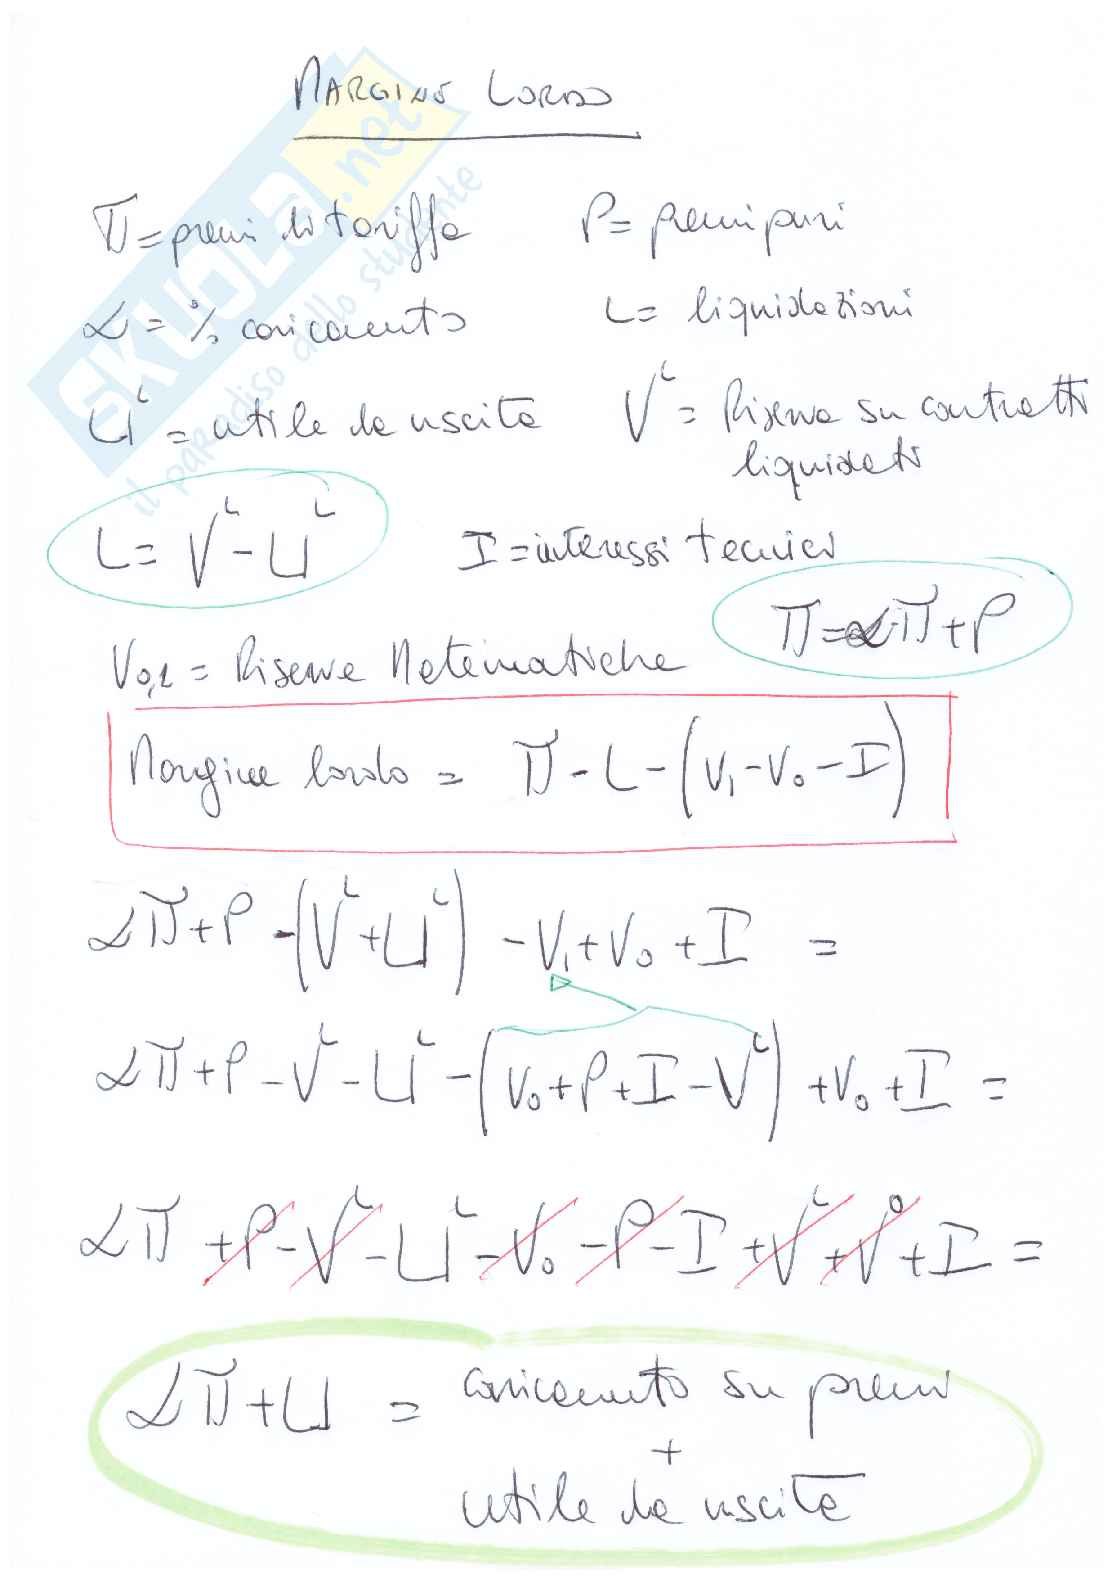 MARGINE LORDO
Π = premi di tariffa    P = premi puri
α = % caricamento    L = liquidazioni
U^L = utile da uscita    V^L = Riserva su contratti
liquidati
L = V^L - U^L    I = interessi tecnici
Π = α·Π + P
V0,1 = Riserve Matematiche
Margine lordo = Π - L - (V1 - V0 - I)
αΠ + P - (V^L + U^L) - V1 + V0 + I =
αΠ + P - V^L - U^L - (V0 + P + I - V^L) + V0 + I =
αΠ + P - V^L - U^L - V0 - P - I + V^L + V^0 + I =
αΠ + U = caricamento su premi
+
utile da uscita
SKUOLA.net
il paradiso dello studente